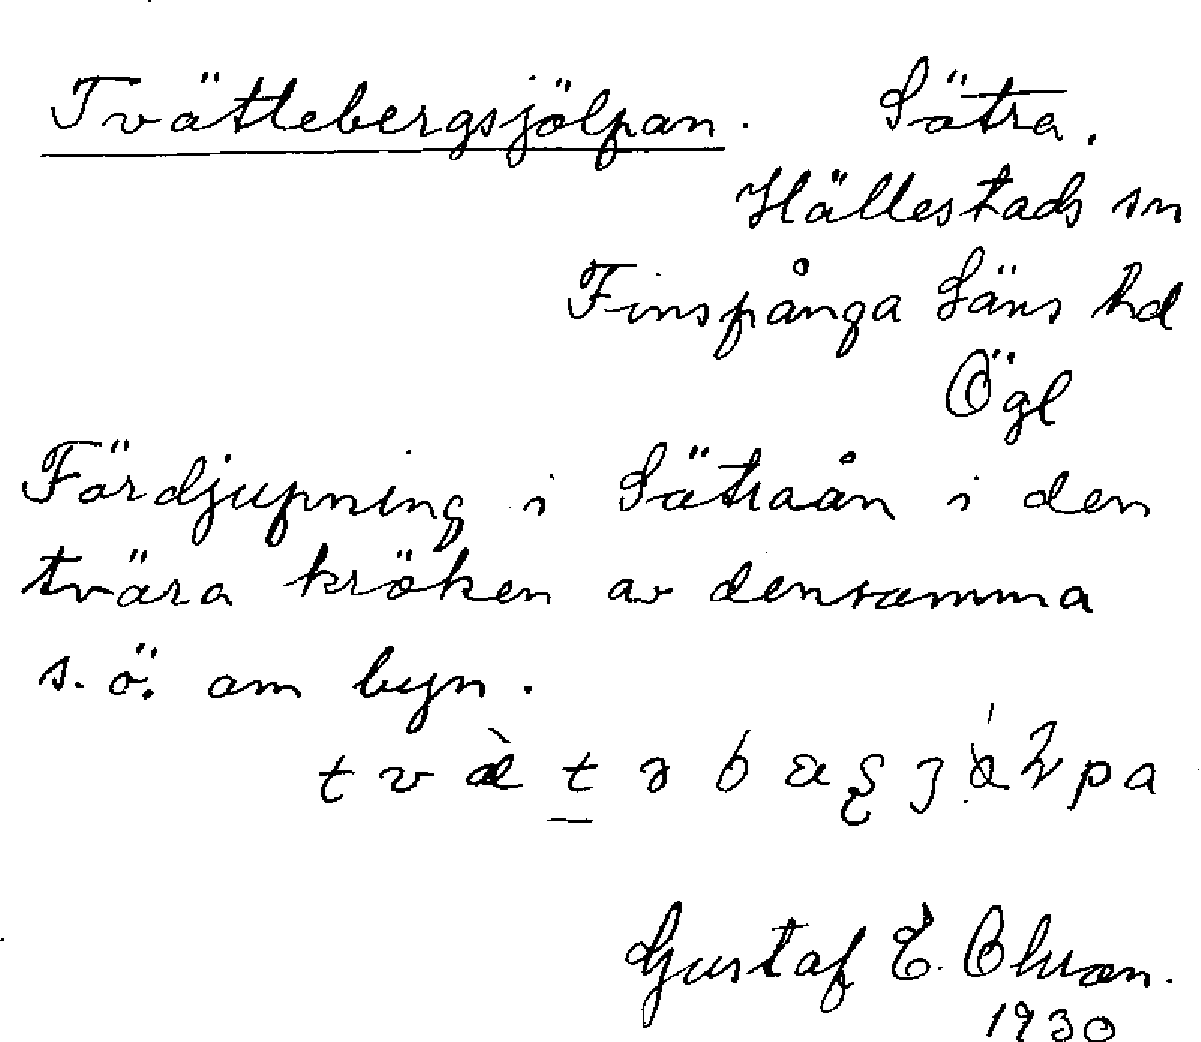 Tvättebergsjölpan. Sätra.
Hällestads sn
Finspånga läns hd
Ögl
Fördjupning i Sätraån i den
tvära kröken av densamma
s.ö. om byn.
Gustaf E. Olsson.
1930